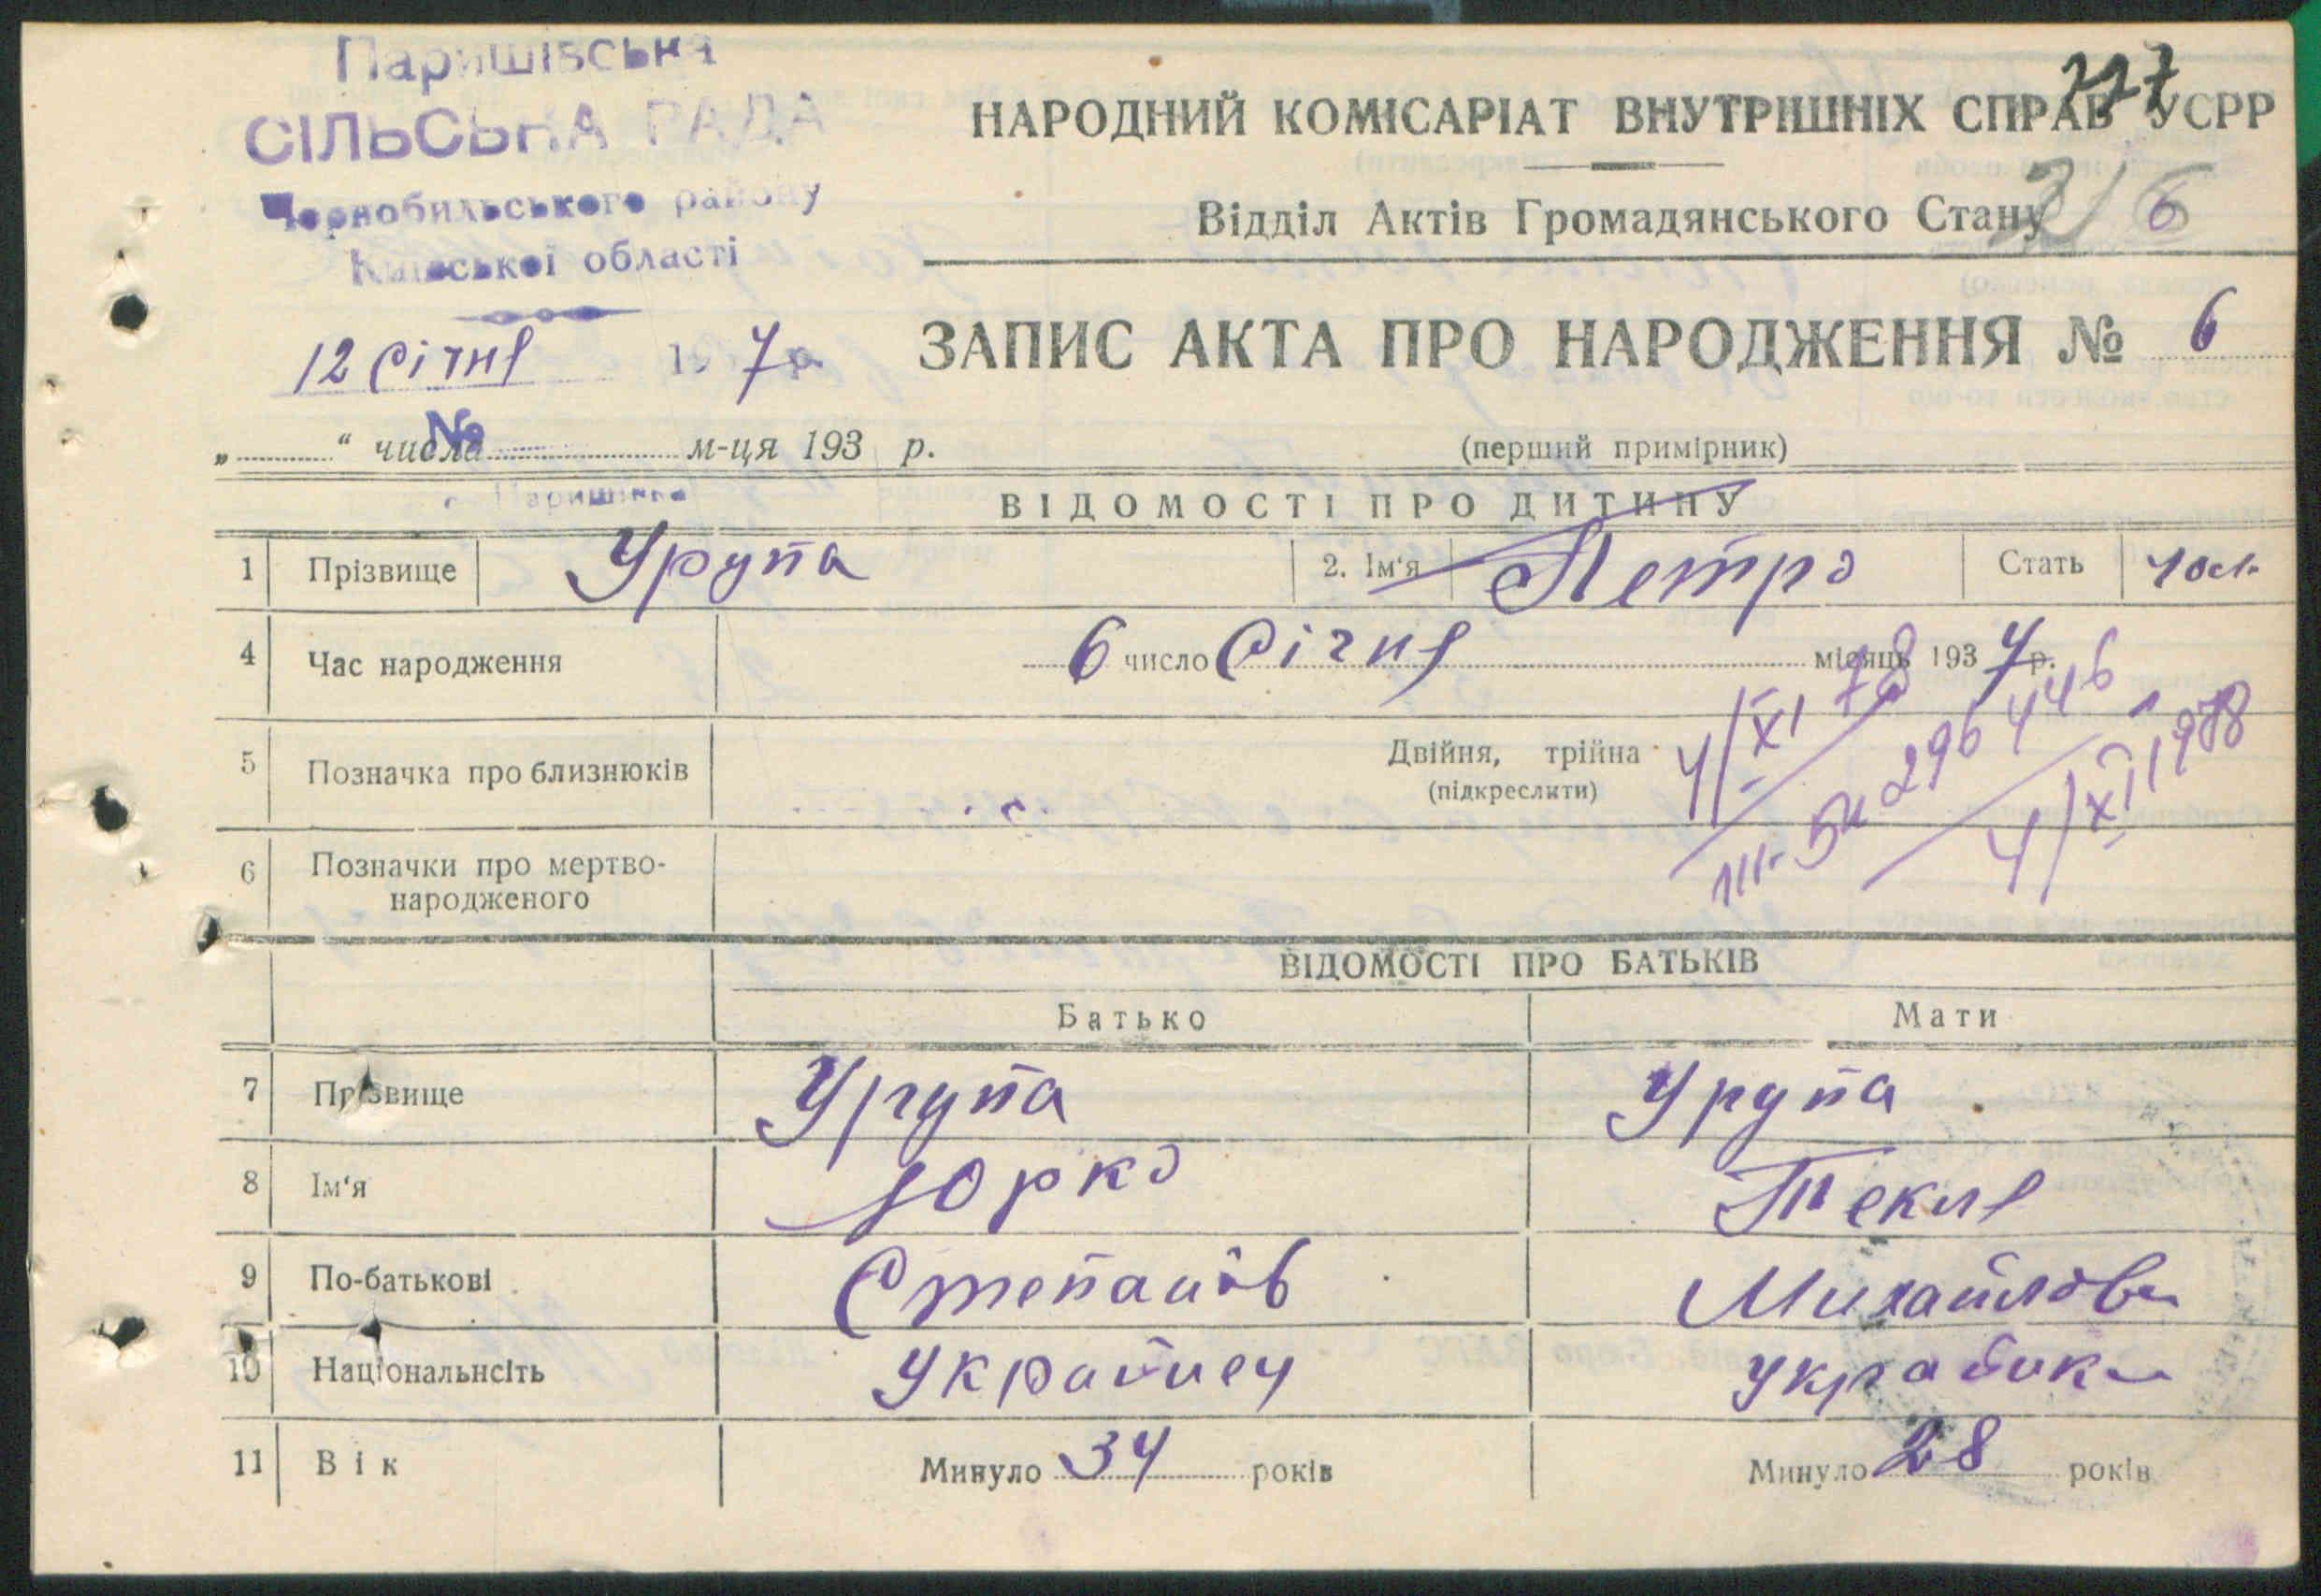 Паришівська
СІЛЬСЬКА РАДА
Чорнобильського району
Київської області
12 Січня 197р
№
227
НАРОДНИЙ КОМІСАРІАТ ВНУТРІШНІХ СПРАВ УСРР
Відділ Актів Громадянського Стану
216
ЗАПИС АКТА ПРО НАРОДЖЕННЯ № 6
„ “ числа м-ця 193 р.
(перший примірник)
с. Паришівка
ВІДОМОСТІ ПРО ДИТИНУ
1 Прізвище Урупа 2. Ім'я Петро Стать чол.
4 Час народження 6 число Січня місяць 1937р.
5 Позначка про близнюків Двійня, трійна (підкреслити)
4/XI 78
III-БК 296446
4/XI 1978
6 Позначки про мертво-
народженого
ВІДОМОСТІ ПРО БАТЬКІВ
Батько Мати
7 Прізвище Урупа Урупа
8 Ім'я Юрко Текля
9 По-батькові Степанов Михайлова
10 Національнсіть Українец Українка
11 Вік Минуло 34 років Минуло 28 років